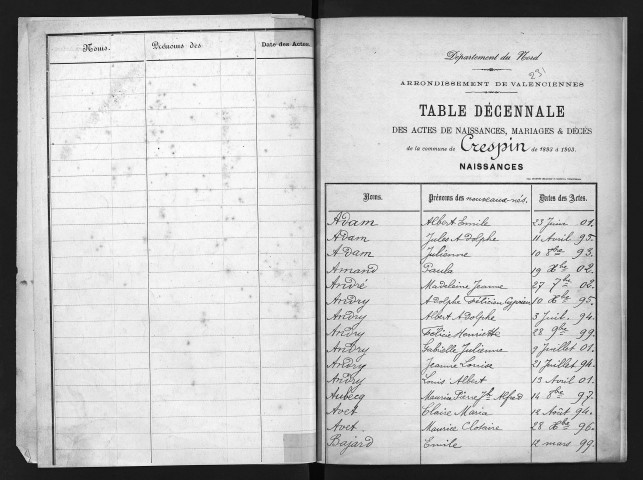 Noms. Prénoms des Date des Actes.
Département du Nord
231
ARRONDISSEMENT DE VALENCIENNES
TABLE DÉCENNALE
DES ACTES DE NAISSANCES, MARIAGES & DÉCÈS
de la commune de Crespin de 1893 à 1903.
NAISSANCES
Noms. Prénoms des nouveaux-nés. Dates des Actes.
Adam Albert Emile 23 Juin 01.
Adam Jules Adolphe 11 Avril 95.
Adam Julienne 10 8bre 93.
Amand Paula 19 Xbre 02.
André Madeleine Jeanne 27 7bre 02.
Andry Adolphe Félicien Cyprien 10 Xbre 95.
Andry Albert Adolphe 3 Juil. 94.
Andry Félicie Henriette 28 9bre 99.
Andry Gabielle Julienne 9 Juillet 01.
Andry Jeanne Louise 21 Juillet 94.
Andry Louis Albert 13 Avril 01.
Aubecq Maurice Pierre Jh Alfred 14 8bre 97.
Avet Claire Maria 12 Août 94.
Avet Maurice Clotaire 28 Xbre 96.
Bajard Emile 12 mars 99.